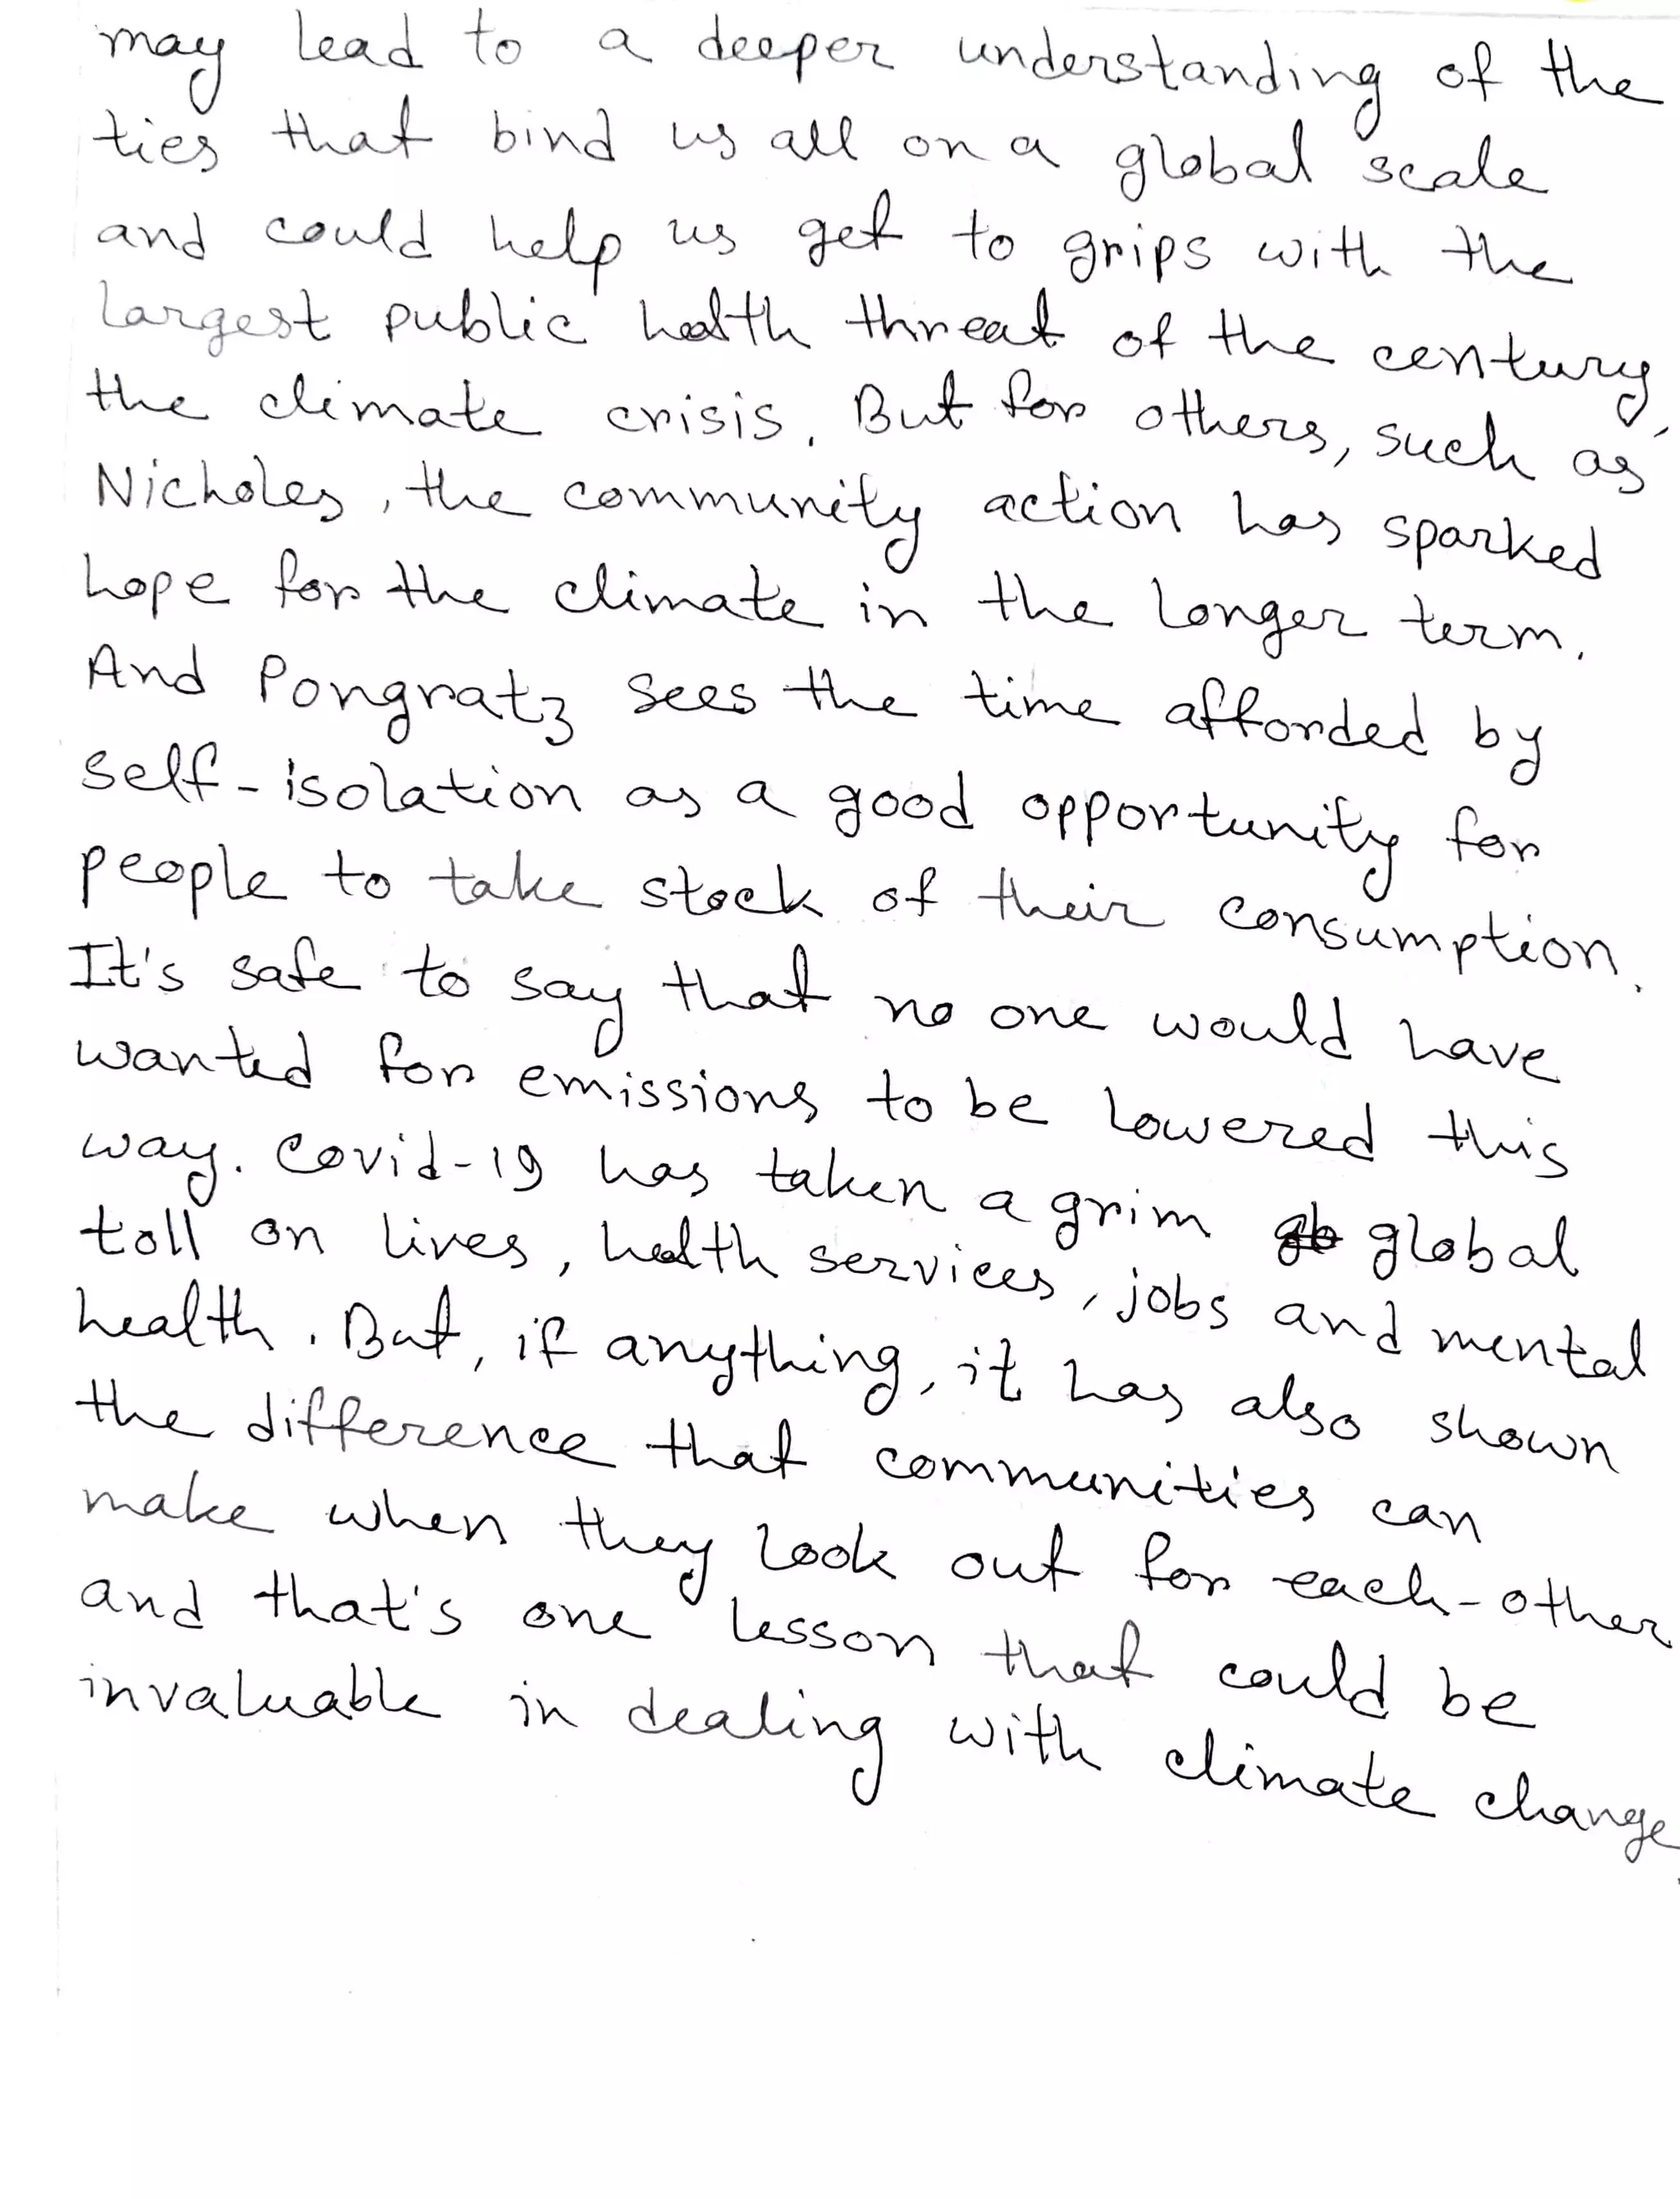 may lead to a deeper understanding of the
ties that bind us all on a global scale
and could help us get to grips with the
largest public health threat of the century,
the climate crisis. But for others, such as
Nicholes, the community action has sparked
hope for the climate in the longer term.
And Pongratz sees the time afforded by
self-isolation as a good opportunity for
people to take stock of their consumption.
It's safe to say that no one would have
wanted for emissions to be lowered this
way. Covid-19 has taken a grim global
toll on lives, health services, jobs and mental
health. But, if anything, it has also shown
the difference that communities can
make when they look out for each-other
and that's one lesson that could be
invaluable in dealing with climate change